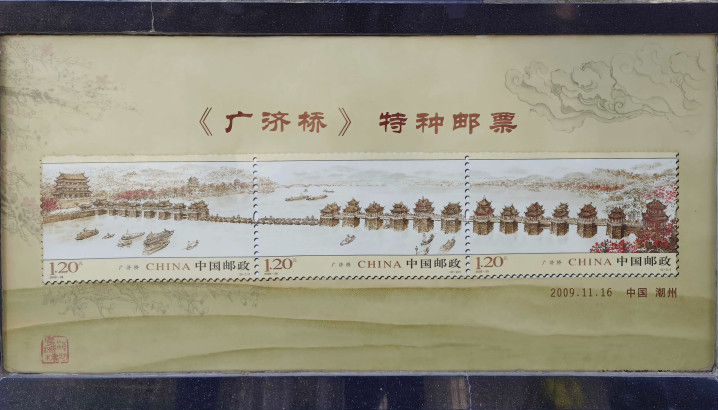 《广济桥》特种邮票
1.20元 广济桥 CHINA 中国邮政
1.20元 广济桥 CHINA 中国邮政
1.20元 广济桥 CHINA 中国邮政
2009.11.16 中国 潮州